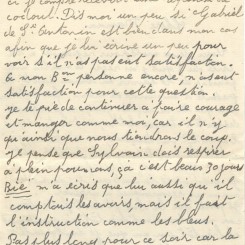 et je compte recevoir
cochon. Dis moi un peu si Gabriel
de St Antonin est bien dans mon cas
afin que je lui écrive un peu pour
voir s'il n'a pas eut satisfaction.
A mon Bon personne encore, n'a eut
satisfaction pour cette question.
je te prie de continuer a faire courage
et manger comme moi car il n'y
qu'ainsi que nous tiendrons le coup.
Je pense que Sylvain doit respirer
a plein poumons, ça c'est beau 30 jours
Bié m'a écris que lui aussi qu'il
comptait les avoirs, mais il fait
l'instruction comme les bleus.
Pas plus long pour ce soir car la